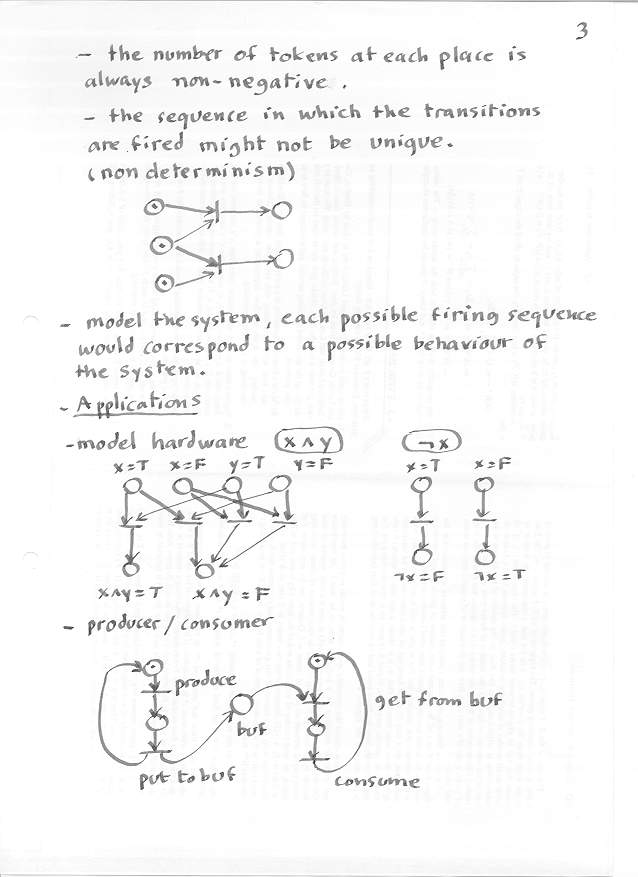 3
- the number of tokens at each place is
always non-negative.
- the sequence in which the transitions
are fired might not be unique.
(non determinism)
- model the system, each possible firing sequence
would correspond to a possible behaviour of
the system.
- Applications
- model hardware x∧y ¬x
x=T x=F y=T y=F x=T x=F
x∧y=T x∧y=F ¬x=F ¬x=T
- producer/consumer
produce
get from buf
buf
put to buf consume